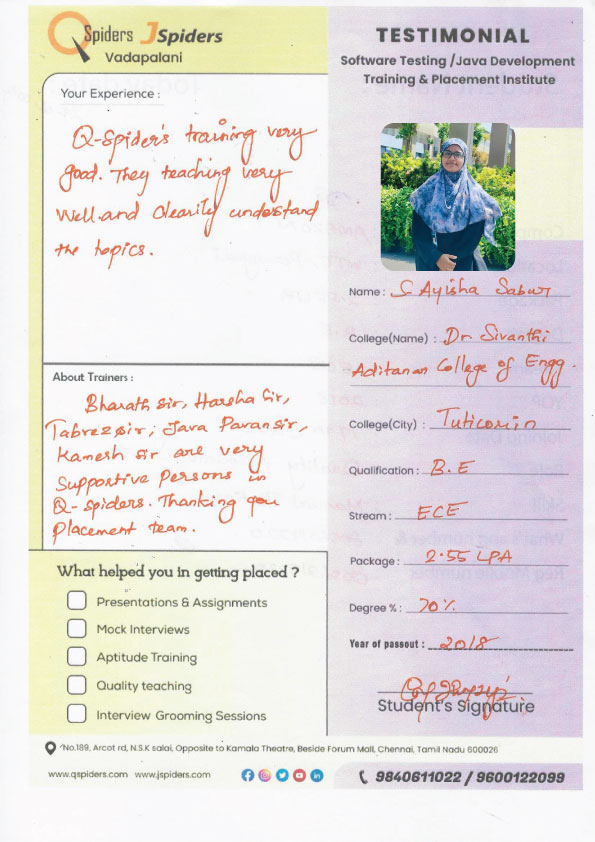 QSpiders JSpiders
Vadapalani
Your Experience :
Q-Spider's training very
good. They teaching very
well and clearily understand
the topics.
About Trainers :
Bharath sir, Harsha sir,
Tabrez sir, Java Pavan sir,
Kamesh sir are very
Supportive Persons in
Q-spiders. Thanking you
Placement team.
What helped you in getting placed ?
Presentations & Assignments
Mock Interviews
Aptitude Training
Quality teaching
Interview Grooming Sessions
TESTIMONIAL
Software Testing /Java Development
Training & Placement Institute
Name : S Ayisha Sabur
College(Name) : Dr Sivanthi
Aditanar College of Engg.
College(City) : Tuticorin
Qualification : B.E
Stream : ECE
Package : 2.55 LPA
Degree % : 70%
Year of passout : 2018
Student's Signature
No.189, Arcot rd, N.S.K salai, Opposite to Kamala Theatre, Beside Forum Mall, Chennai, Tamil Nadu 600026
www.qspiders.com www.jspiders.com
9840611022 / 9600122099